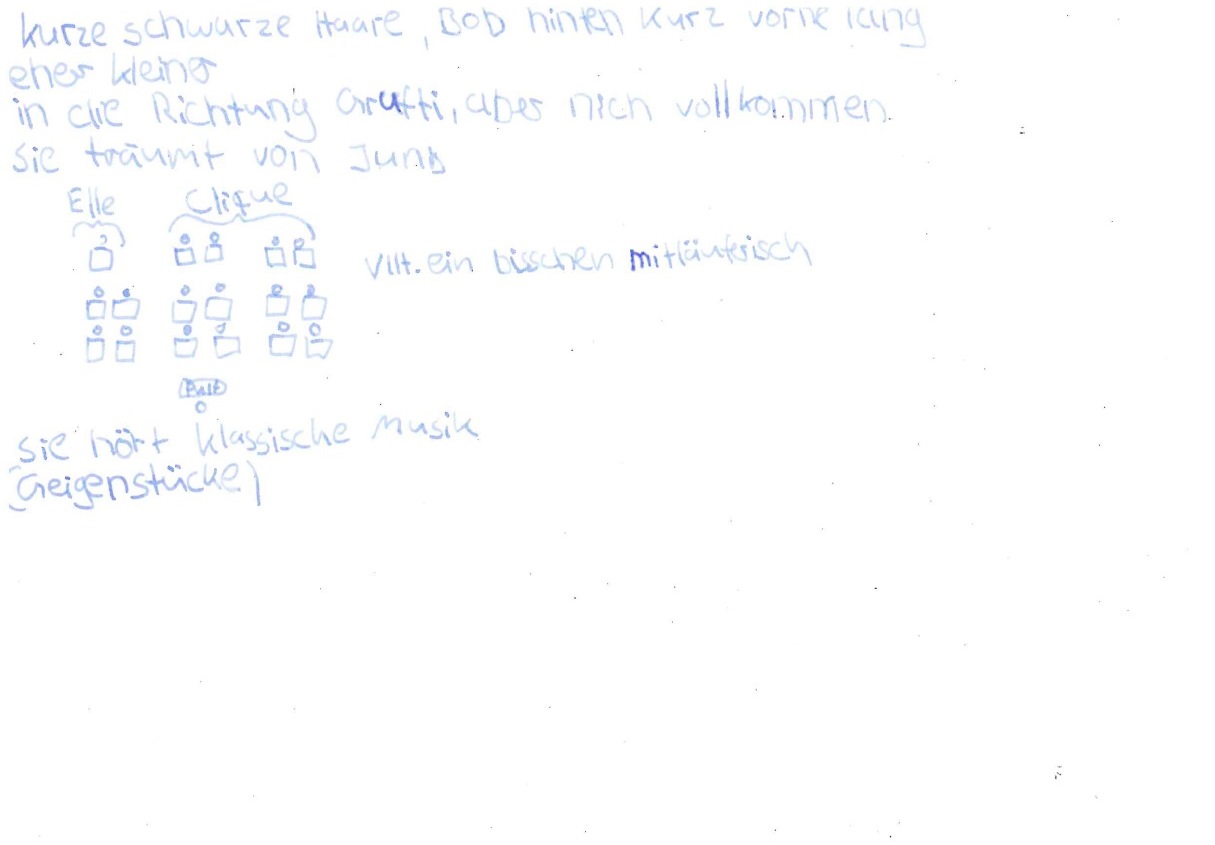 kurze schwarze Haare, Bob hinten kurz vorne lang
eher kleiner
in die Richtung Grufti, aber nich vollkommen.
sie träumt von Jungs
Elle Clique
vllt. ein bisschen mitläuferisch
Pult
sie hört klassische Musik
(Geigenstücke)